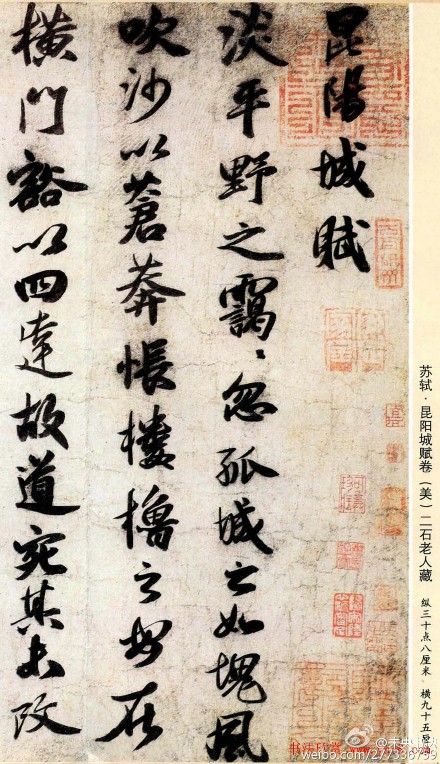 昆陽城賦
淡平野之靄〻忽孤城之如塊風
吹沙以蒼莽悵樓櫓之安在
橫門豁以四達故道宛其未改
苏轼·昆阳城赋卷（美）二石老人藏 纵三十点八厘米 横九十五厘
书法欣赏
weibo.com/277338799